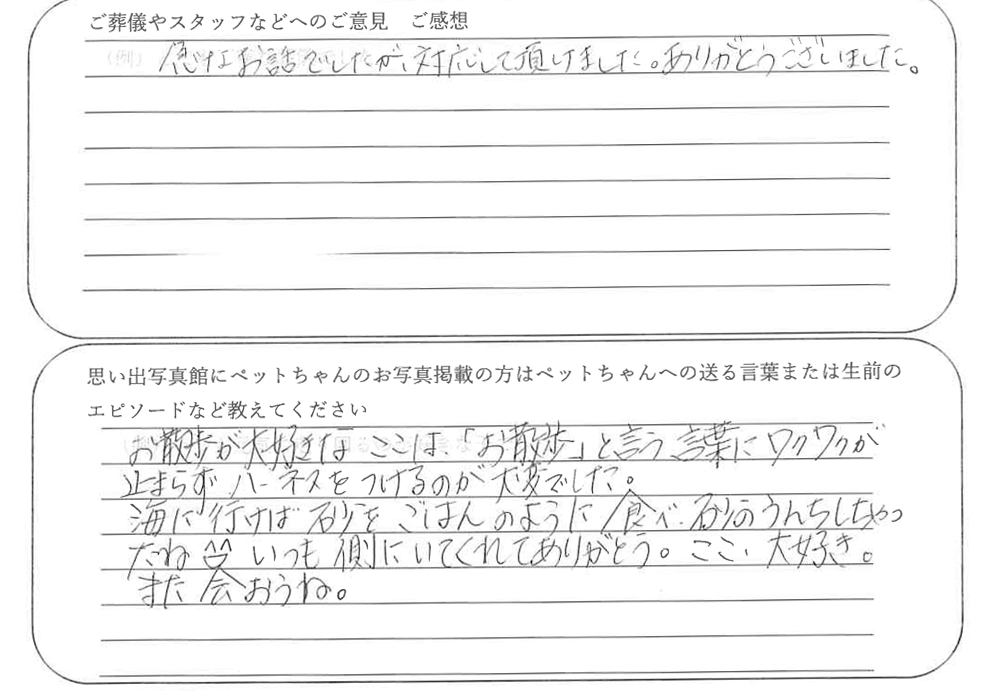 ご葬儀やスタッフなどへのご意見　ご感想
(例) 急なお話でしたが、対応して頂けました。ありがとうございました。
思い出写真館にペットちゃんのお写真掲載の方はペットちゃんへの送る言葉または生前の
エピソードなど教えてください
お散歩が大好きな ここは、「お散歩」と言う言葉にワクワクが
止まらず ハーネスをつけるのが大変でした。
海に行けば 砂を ごはんのように食べ、砂のうんちしちゃっ
たね いつも側にいてくれてありがとう。ここ、大好き。
また会おうね。